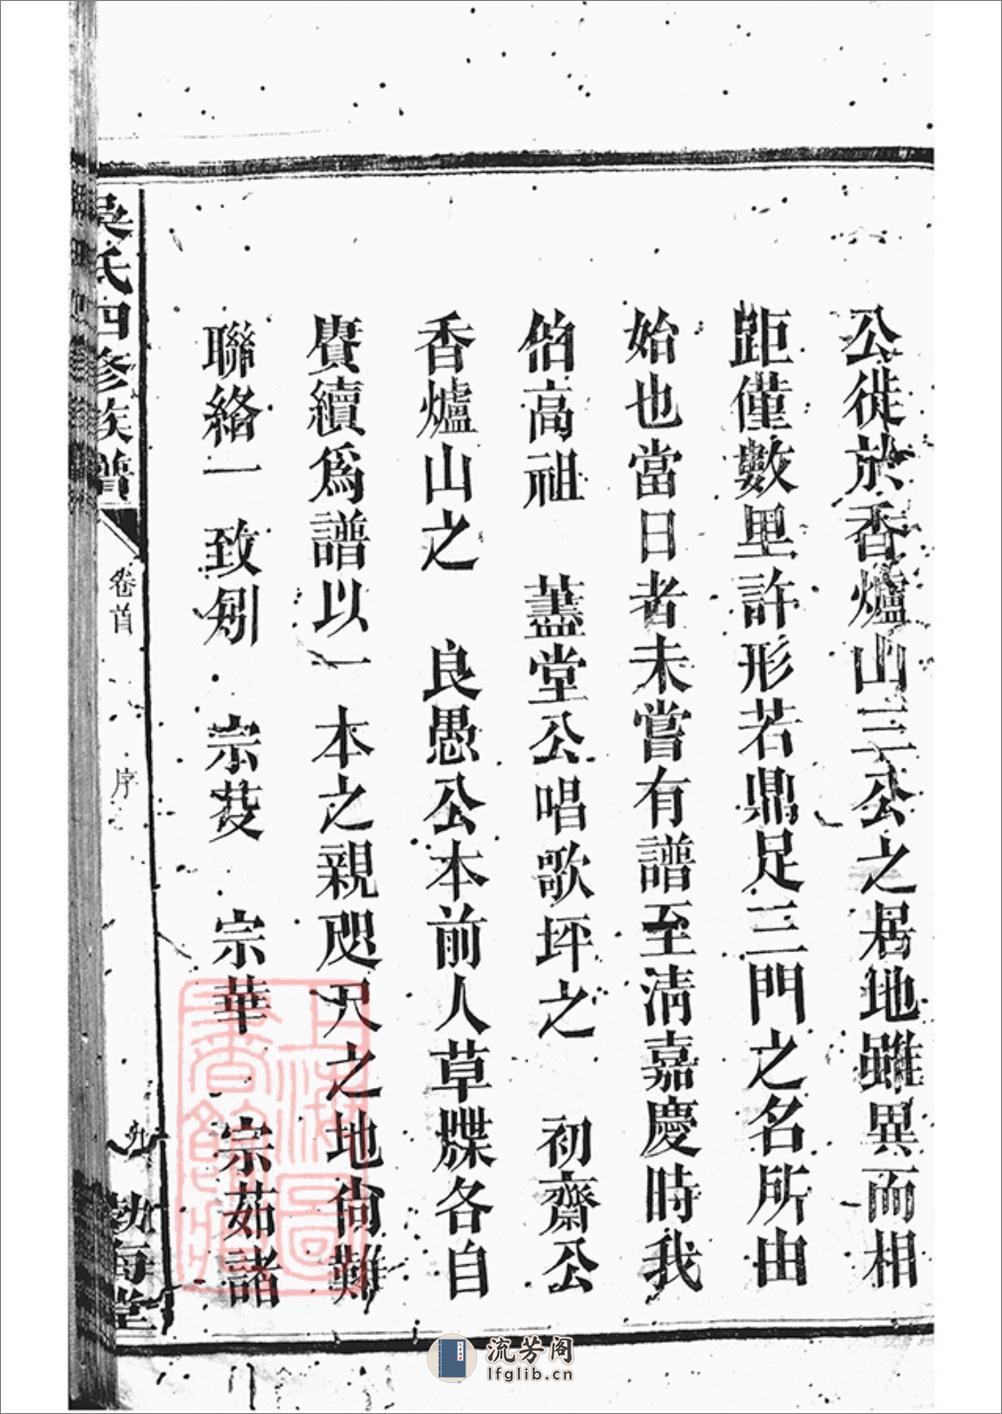 公徙於香爐山三公之居地雖異而相
距僅數里許形若鼎足三門之名所由
始也當日者未嘗有譜至清嘉慶時我
伯高祖 藎堂公唱歌坪之 初齋公
香爐山之 良愚公本前人草牒各自
賡續爲譜以一本之親咫尺之地尙難
聯絡一致芻 宗芨 宗華 宗茹諸
吳氏四修族譜 卷首 序 九
上海圖書館藏
流芳阁
lfglib.cn